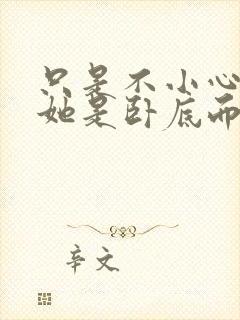 只是不小心
她是卧底而
辛文